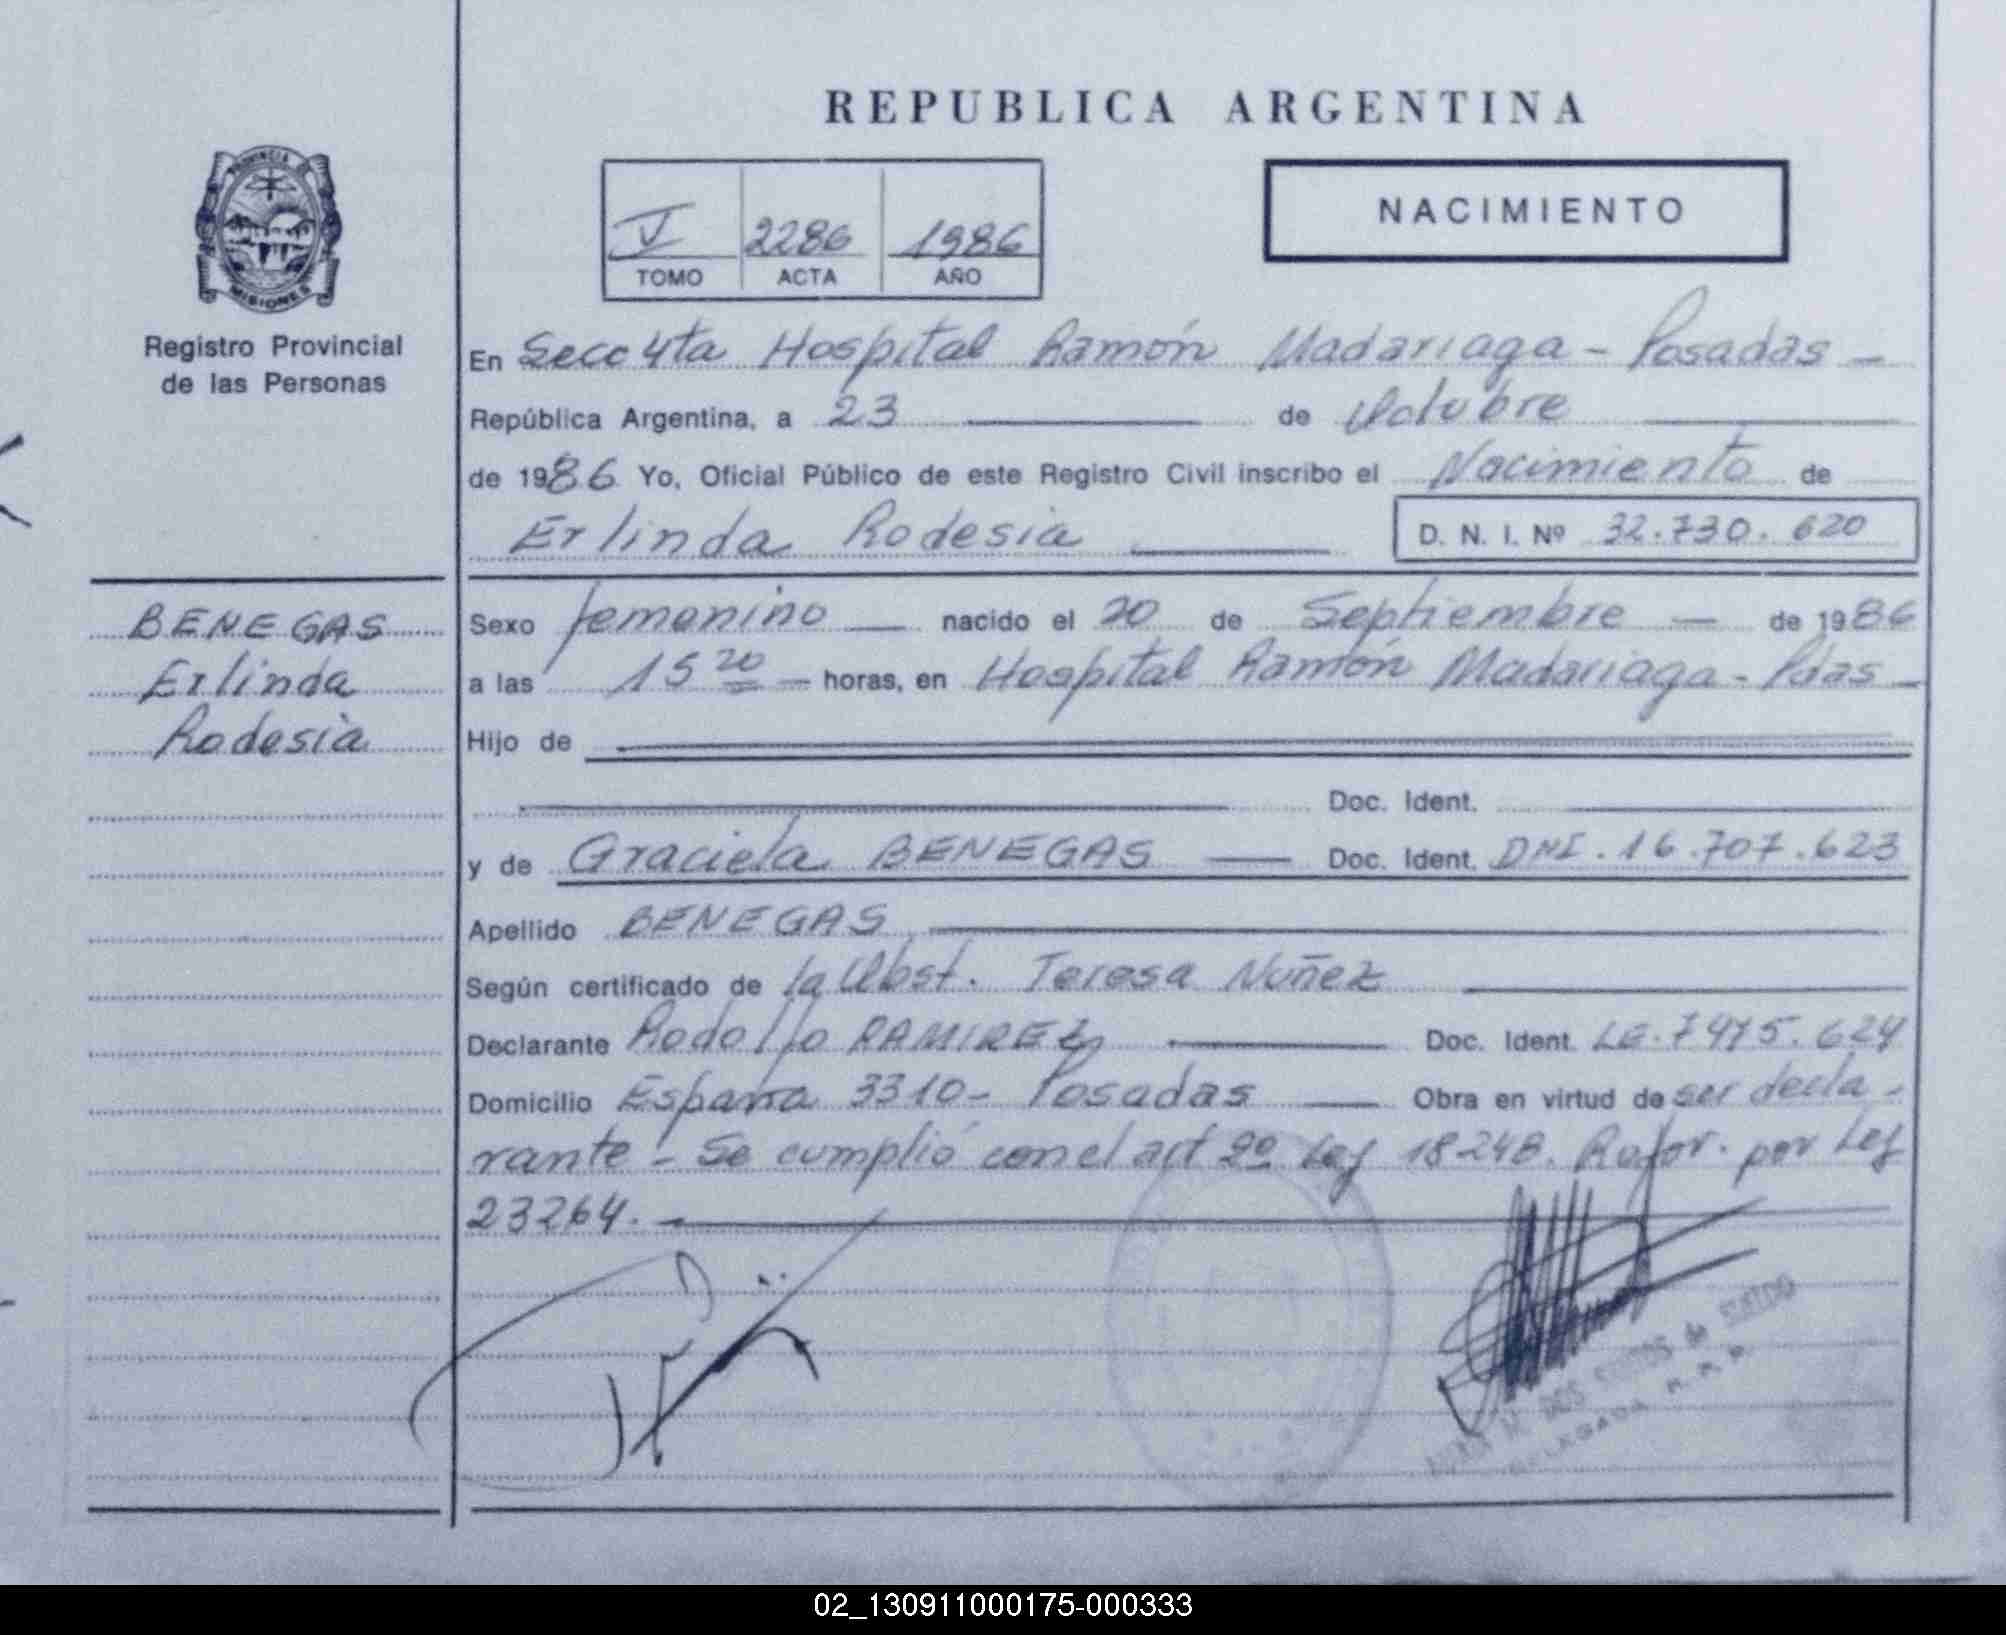 REPUBLICA ARGENTINA
PROVINCIA
MISIONES
Registro Provincial
de las Personas
V 2286 1986
TOMO ACTA AÑO
NACIMIENTO
En Secc 4ta Hospital Ramón Madariaga - Posadas -
República Argentina, a 23 de Octubre
de 1986 Yo, Oficial Público de este Registro Civil inscribo el Nacimiento de
Erlinda Rodesia
D. N. I. Nº 32.730.620
BENEGAS
Erlinda
Rodesia
Sexo femenino nacido el 20 de Septiembre de 1986
a las 15 20 horas, en Hospital Ramón Madariaga - Pdas -
Hijo de
Doc. Ident.
y de Graciela BENEGAS Doc. Ident. DNI. 16.707.623
Apellido BENEGAS
Según certificado de la Obst. Teresa Nuñez
Declarante Rodolfo RAMIREZ Doc. Ident. LE. 7475.624
Domicilio España 3310 - Posadas Obra en virtud de ser decla-
rante - Se cumplió con el art 2º Ley 18248. Refor. por Ley
23264. -
DELEGADA R. P. P.
02_130911000175-000333